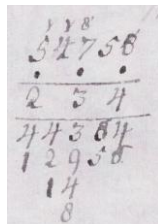 1 1 8
5 4 7 5 6
. . .
2 3 4
4 4 3 6 4
1 2 9 5 6
1 4
8